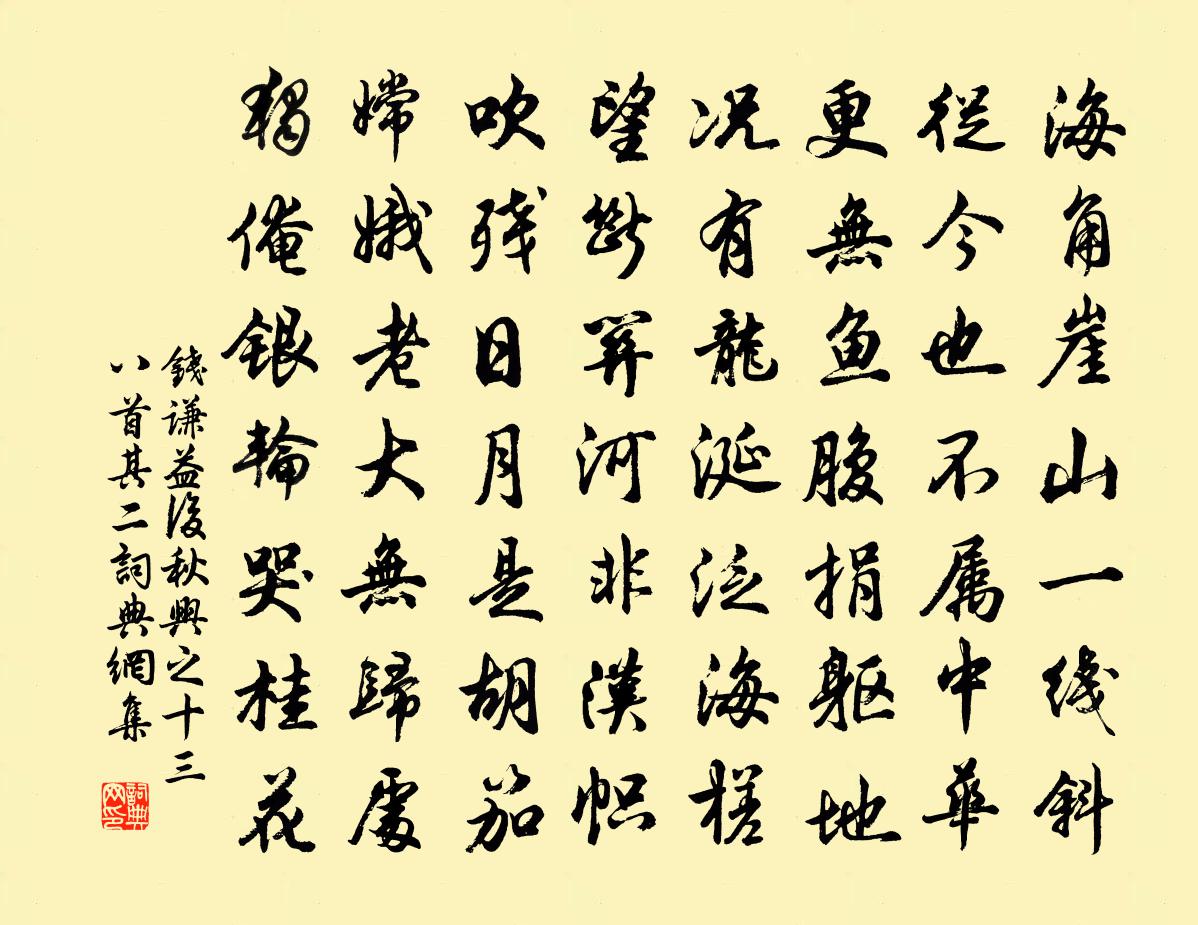 海角崖山一线斜
從今也不属中華
更無鱼腹捐躯地
况有龍涎泛海槎
望斷關河非漢帜
吹残日月是胡笳
嫦娥老大無歸處
獨俺銀輪哭桂花
錢谦益後秋興之十三
八首其二詞典網集
詞典网印